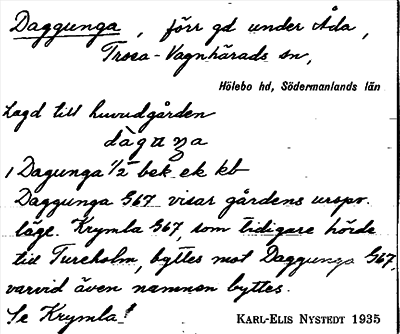 Daggunga, förr gd under Åda,
Trosa-Vagnhärads sn,
Hölebo hd, Södermanlands län
Lagd till huvudgården
1 Dagunga 1/2 bek ek kb
Daggunga G67 visar gårdens urspr.
läge. Krymla G67, som tidigare hörde
till Tureholm, byttes mot Daggunga G67,
varvid även namnen byttes.
Se Krymla!
KARL-ELIS NYSTEDT 1935